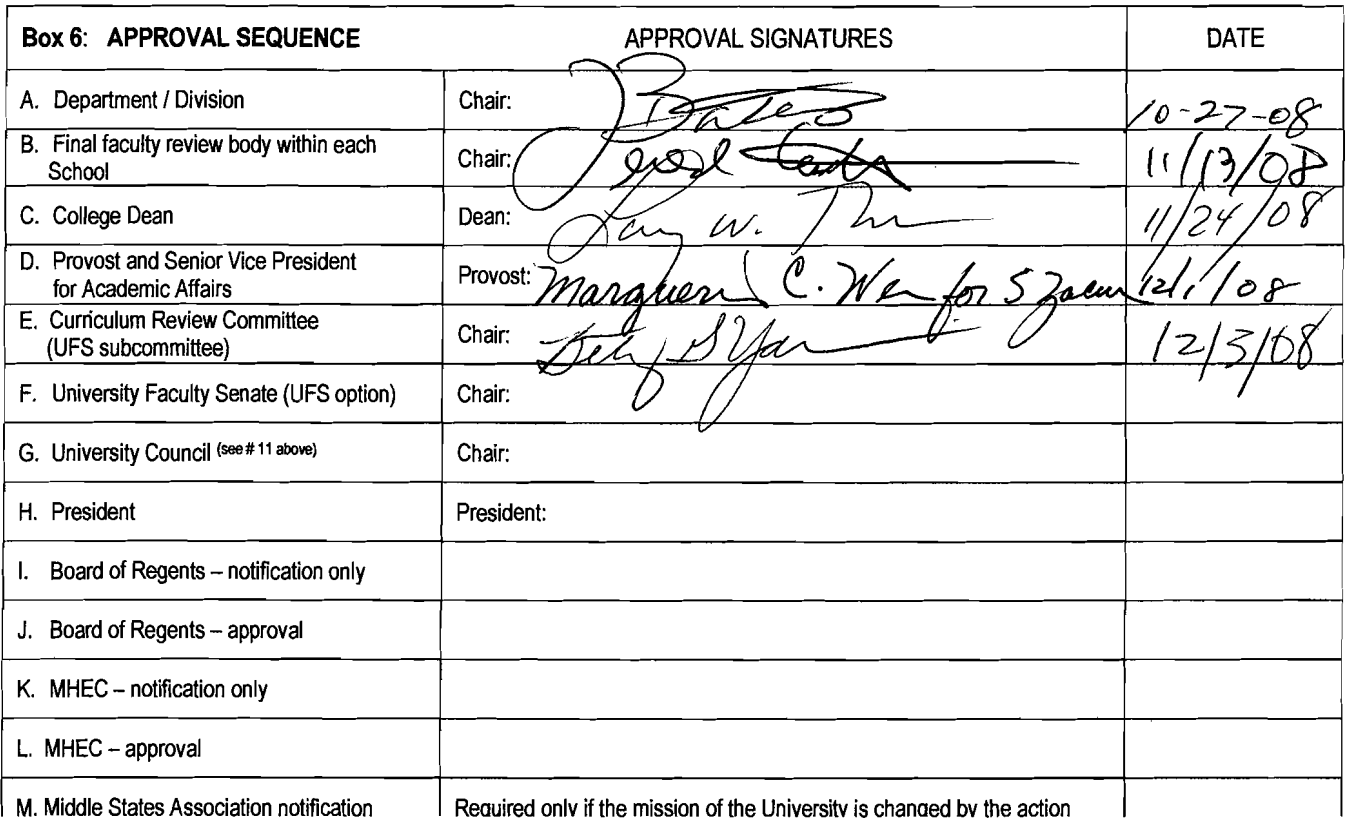 Box 6: APPROVAL SEQUENCE APPROVAL SIGNATURES DATE
A. Department / Division Chair: 10-27-08
B. Final faculty review body within each
School Chair: 11/13/08
C. College Dean Dean: W. 11/24/08
D. Provost and Senior Vice President
for Academic Affairs Provost: C. for 12/1/08
E. Curriculum Review Committee
(UFS subcommittee) Chair: 12/3/08
F. University Faculty Senate (UFS option) Chair:
G. University Council (see # 11 above) Chair:
H. President President:
I. Board of Regents – notification only
J. Board of Regents – approval
K. MHEC – notification only
L. MHEC – approval
M. Middle States Association notification Required only if the mission of the University is changed by the action